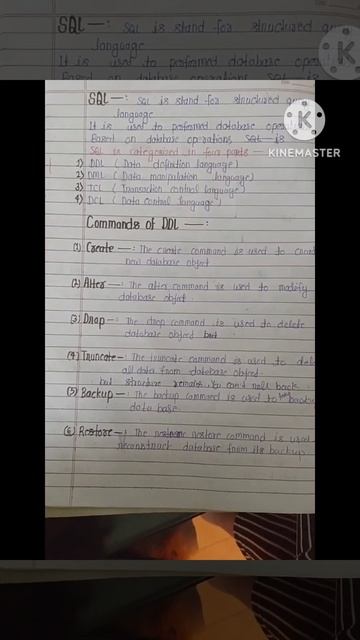 SQL —: SQL is stand for structured
language
It is used to preformed database
SQL —: SQL is stand for structured
language
It is used to preformed database
Based on database operations SQL is
SQL is categorized in four parts —
1) DDL (Data defination language)
2) DML (Data manipulation language)
3) TCL (Transaction control language)
4) DCL (Data control language
Commands of DDL —:
(1) Create —: The create command is used to
new database object
(2) Alter —: The alter command is used to modify
database object
(3) Drop —: The drop command is used to delete
database object but
(4) Truncate —: The truncate command is used to
all data from database object
but structure remains. You can't roll back.
(5) Backup —: The backup command is used to
data base
(6) Restore —: The restore command is used
reconstruct database from its backup.
KINEMASTER